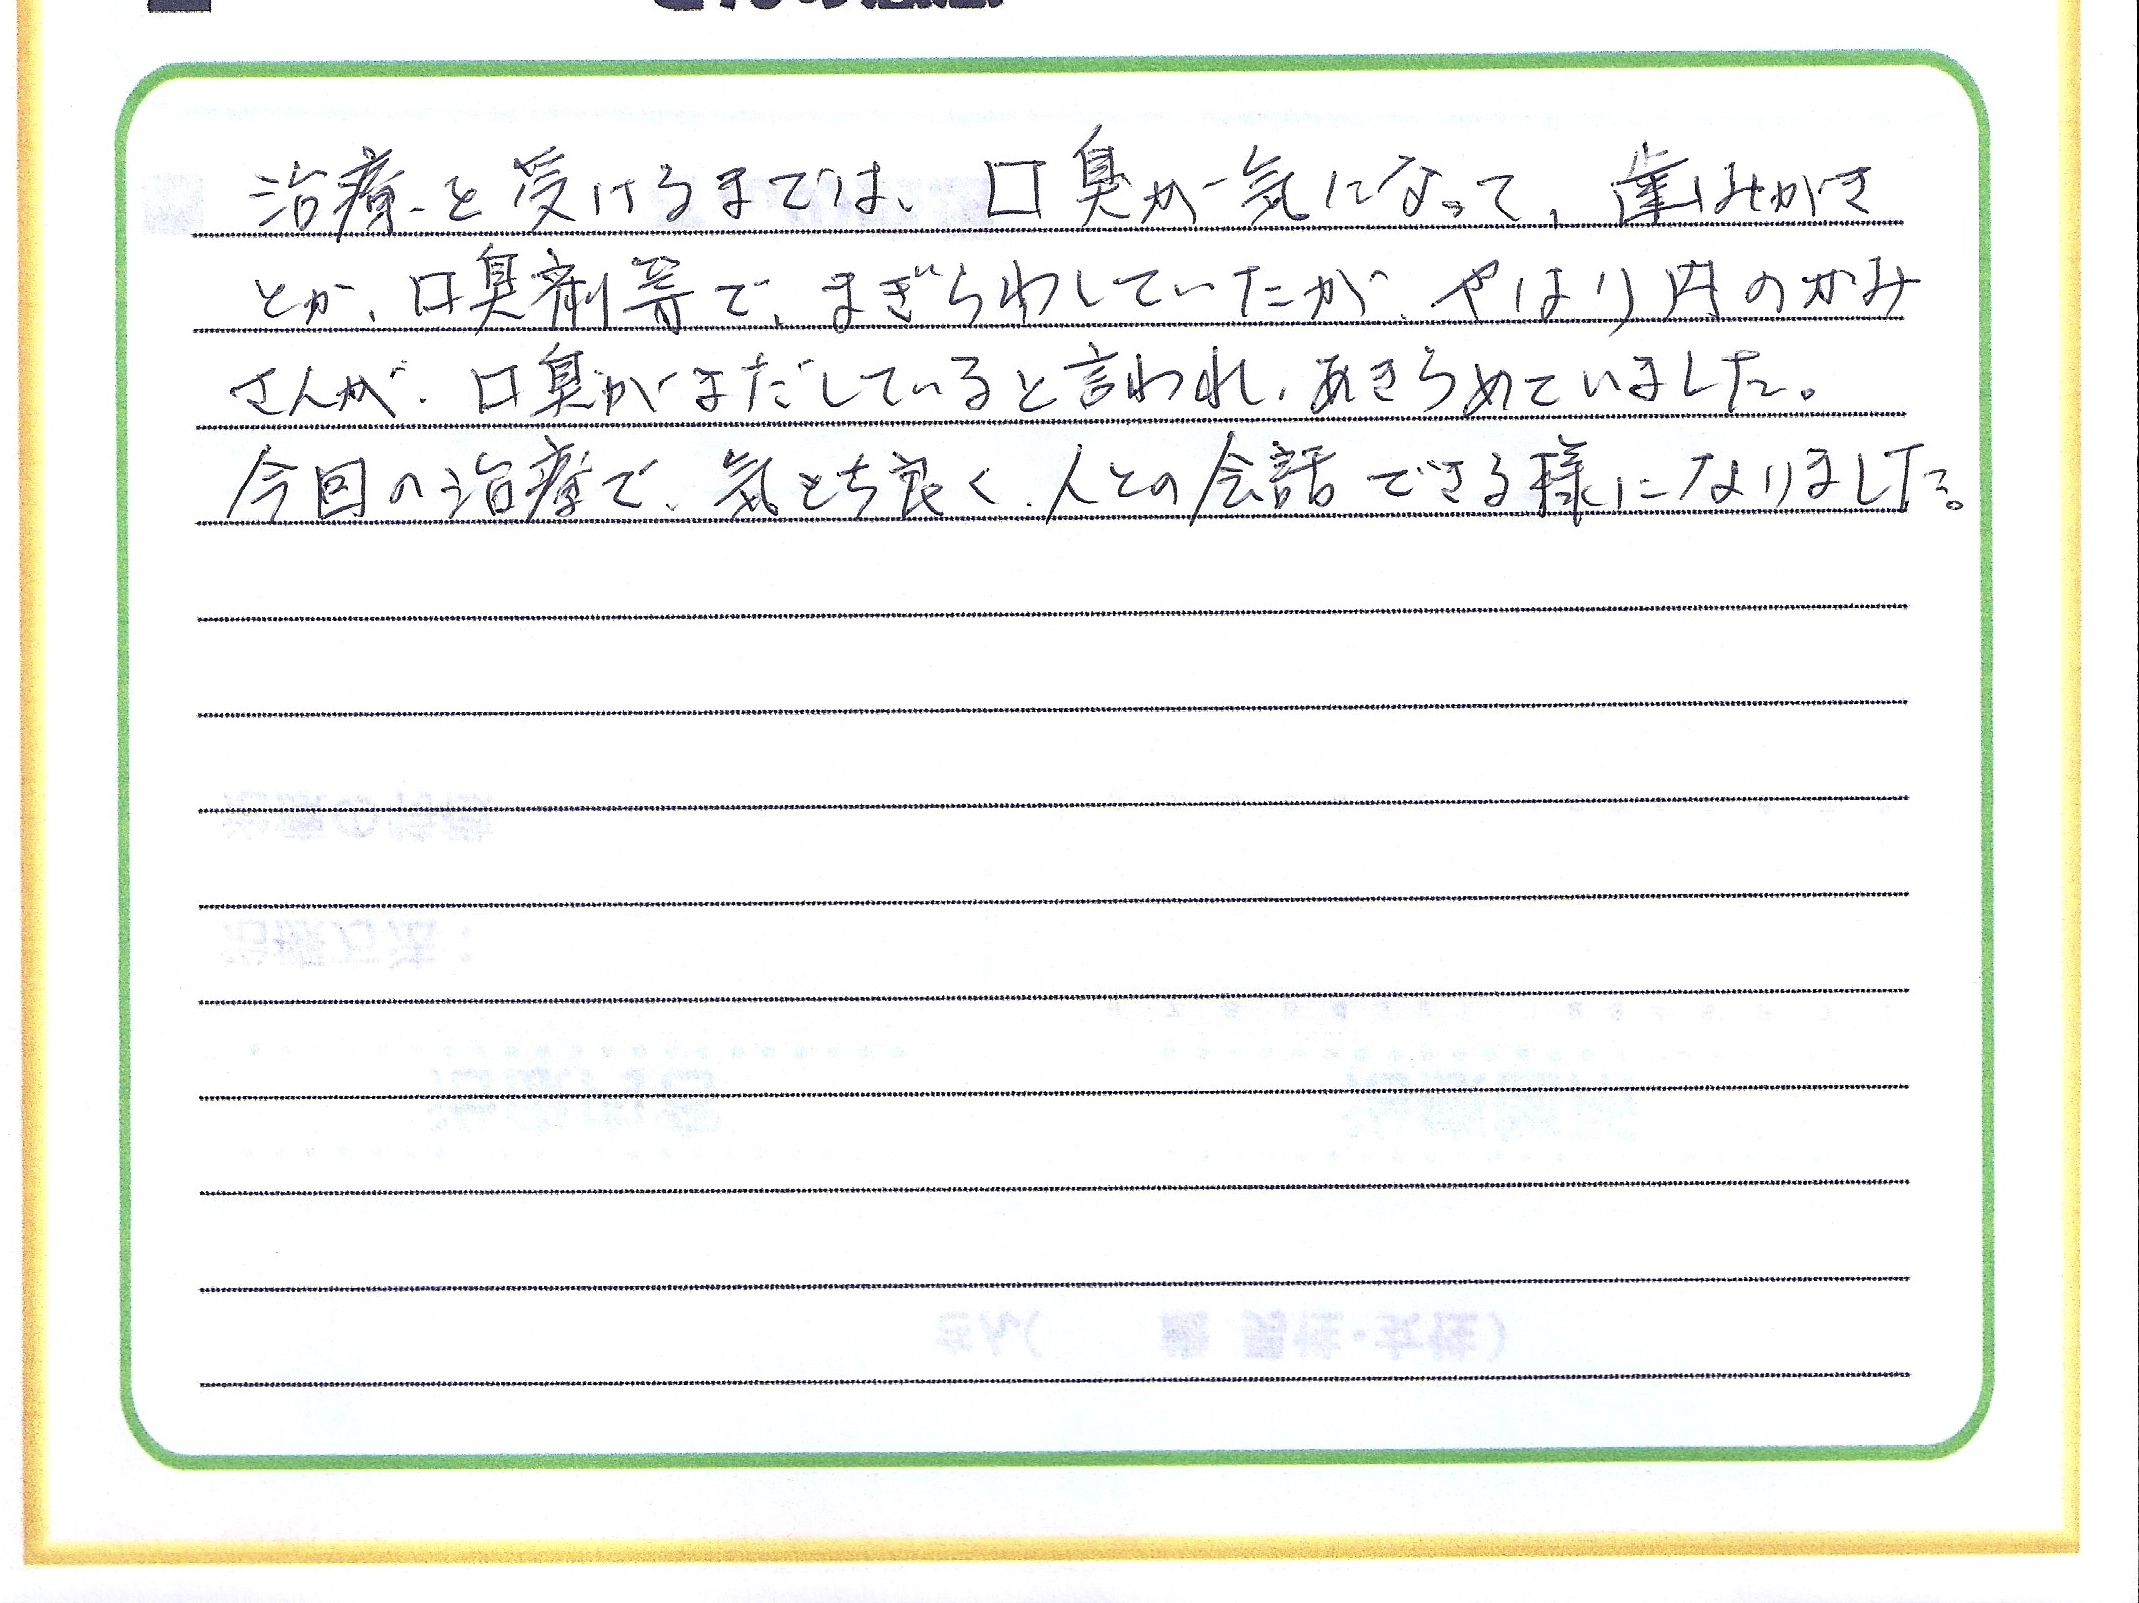 治療を受けるまでは、口臭が気になって、歯みがき
とか、口臭剤等で、まぎらわしていたが、やはり内のかみ
さんが、口臭がまだしていると言われ、あきらめていました。
今回の治療で、気とち良く、人との会話できる様になりました。